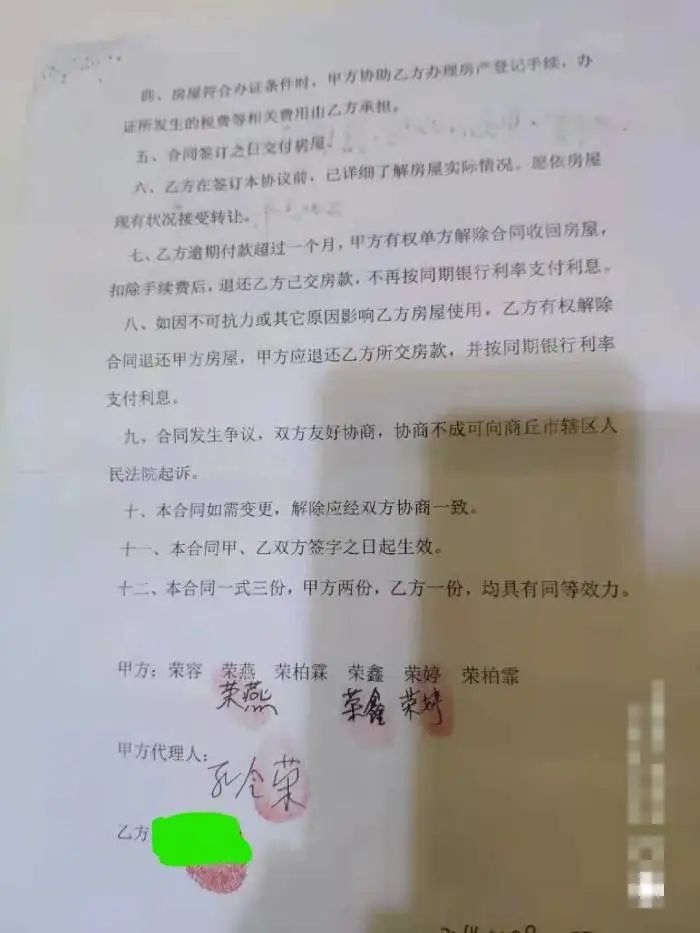 四、房屋符合办证条件时，甲方协助乙方办理房产登记手续，办
证所发生的税费等相关费用由乙方承担。
五、合同签订之日交付房屋。
六、乙方在签订本协议前，已详细了解房屋实际情况。愿依房屋
现有状况接受转让。
七、乙方逾期付款超过一个月，甲方有权单方解除合同收回房屋，
扣除手续费后，退还乙方已交房款，不再按同期银行利率支付利息。
八、如因不可抗力或其它原因影响乙方房屋使用，乙方有权解除
合同退还甲方房屋，甲方应退还乙方所交房款，并按同期银行利率
支付利息。
九、合同发生争议，双方友好协商，协商不成可向商丘市辖区人
民法院起诉。
十、本合同如需变更，解除应经双方协商一致。
十一、本合同甲、乙双方签字之日起生效。
十二、本合同一式三份，甲方两份，乙方一份，均具有同等效力。
甲方：荣容 荣燕 荣柏霖 荣鑫 荣婷 荣柏霏
荣燕 荣鑫 荣婷
甲方代理人：
孔令荣
乙方